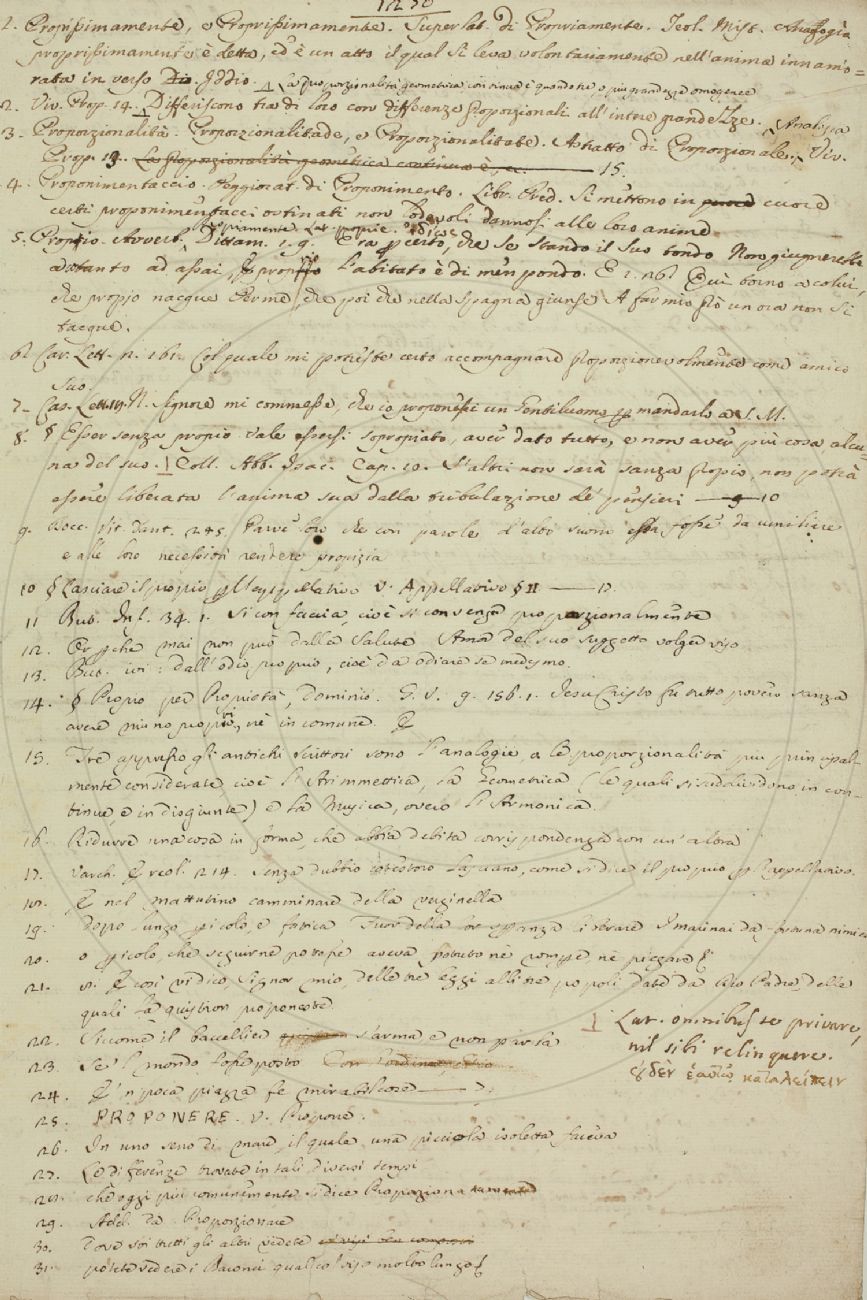 1230
1. Propissimamente, e Proprissimamente. Superlat. di Propriamente. Teol. Mist. Anagogìa
proprissimamente è detta, ed è un atto il qual si leva volontariamente nell'anima innamo=
rata in verso Iddio.
La proporzionalità geometrica continua è quando tre o più grandezze omogenee
2. Viv. Prop. 14. Differiscono tra di loro con differenze proporzionali all'intere grandezze.
3. Proporzionalità. Proporzionalitade, e Proporzionalitate. Astratto di Proporzionale. Viv.
Prop. 13. La proporzionalità geometrica continua è, ec. 15.
4. Proponimentaccio. Peggiorat. di Proponimento. Libr. Pred. Si mettono in cuore
certi proponimentacci ostinati non lodevoli dannosi alle loro anime.
5. Proprio. Avverb. Propriamente. Lat. proprie. ἰδίως
Dittam. 1. 9. Era per certo, che se stando il suo tondo Non giugneresti
avanti ad assai, propio L'abitato è di men pondo. E 2. Quì torno a colui,
che propio nacque che poi che nella Spagna giunse A far mio prò un ora non si
tacque.
6. Car. Lett. n. 161. Col quale mi poteste certo accompagnare proporzionevolmente come amico
suo.
7. Cas. Lett. 19. N. Signore mi commesse, che io proponessi un Gentiluomo per mandarlo a S. M.
8. § Esser senza propio vale essersi spropiato, aver dato tutto, e non aver più cosa alcu=
na del suo. Coll. Abb. Isac. Cap. 10. S'altri non sarà sanza propio, non potrà
essere liberata l'anima sua dalla tribulazione de' pensieri 10
9. Bocc. Vit. Dant. 245. Parve loro che con parole d'altro suono fosse da umiliare
e alle loro necessità rendere propizia
10 § Lasciare il propio per l'appellativo V. Appellativo § II 12.
11 But. Inf. 34. 1. Si confaccia, cioè si convenga proporzionalmente
12. Perchè mai non può dalla salute Amor del suo suggetto volger viso
13. But. ivi: dall'odio propio, cioè da odiare se medesimo.
14. § Propio per Propietà, Dominio. G. V. 9. 156. 1. Jesu Cristo fu tutto povero sanza
avere niuno propio, nè in comune.
15. Tre appresso gli antichi scrittori sono l'analogie, o le proporzionalità più principal=
mente considerate, cioè l'Arimmetica, la Geometrica (le quali si suddividono in con=
tinue, e in disgiunte) e la Musica, ovvero l'Armonica.
16. Ridurre una cosa in forma, che abbia debita corrispondenza con un'altra
17. Varch. Ercol. 214. Senza dubbio cotestoro lasciano, come si dice il propio per l'appellativo.
18. E nel mattutino camminare della verginella
19. Dopo lungo pericolo, e fatica Fuor della speranza liberare I marinai da fortuna nimica
20. o pericolo, che seguirne potesse aveva potuto nè rompere, nè piegare
21. E così vi dico, Signor mio, delle tre leggi alli tre popoli date da Dio Padre, delle
quali la quistion proponeste.
22. Siccome il baccellier s'arma e non parla
23. Se 'l mondo fosse posto
24. E 'n poca piazza fe mirabil cose
25. PROPONERE. V. Propone.
26. In uno seno di mare, il quale una piccola isoletta faceva
27. Le differenze trovate in tali diversi tempi
28. che oggi più comunemente si dice Proporziona
29. Add. da Proporzionare
30. Dove voi tutti gli altri vedete
31. potete vedere i Baronci qual col viso molto lungo
Lat. omnibus se privare,
nil sibi relinquere.
οὐδὲν ἑαυτῷ καταλείπειν